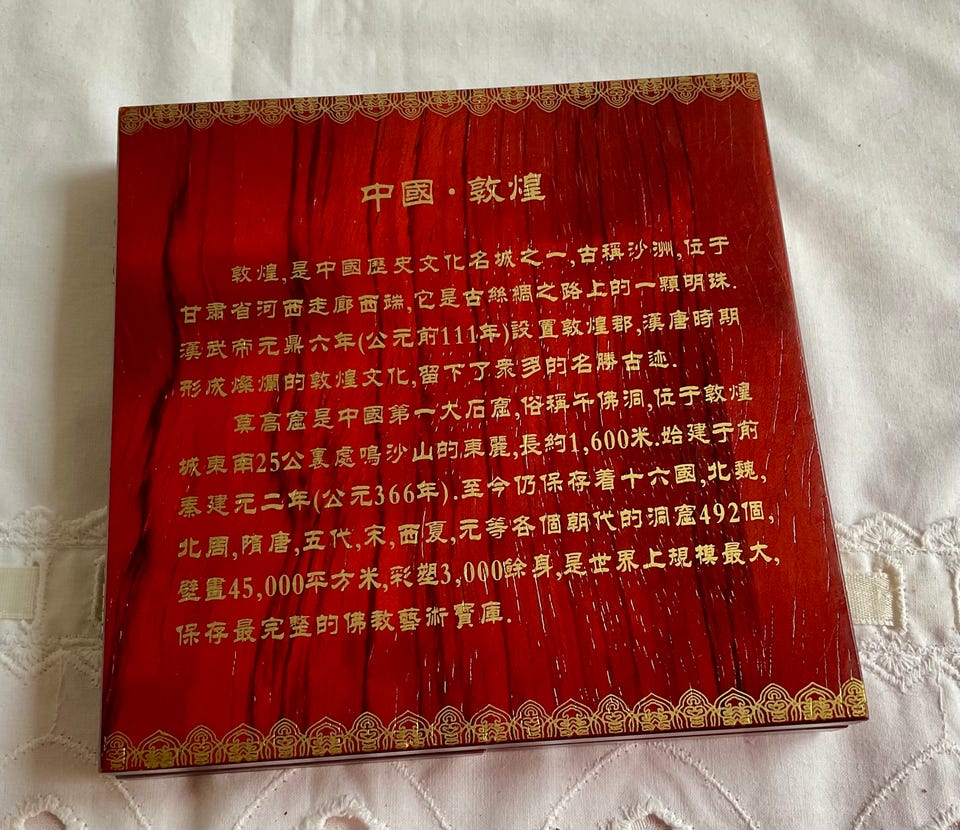 中國·敦煌
敦煌,是中國歷史文化名城之一,古稱沙洲,位于
甘肅省河西走廊西端,它是古絲綢之路上的一顆明珠.
漢武帝元鼎六年(公元前111年)設置敦煌郡,漢唐時期
形成燦爛的敦煌文化,留下了衆多的名勝古迹.
莫高窟是中國第一大石窟,俗稱千佛洞,位于敦煌
城東南25公裏處鳴沙山的東麗,長約1,600米.始建于前
秦建元二年(公元366年).至今仍保存着十六國,北魏,
北周,隋唐,五代,宋,西夏,元等各個朝代的洞窟492個,
壁畫45,000平方米,彩塑3,000餘身,是世界上規模最大,
保存最完整的佛教藝術寶庫.